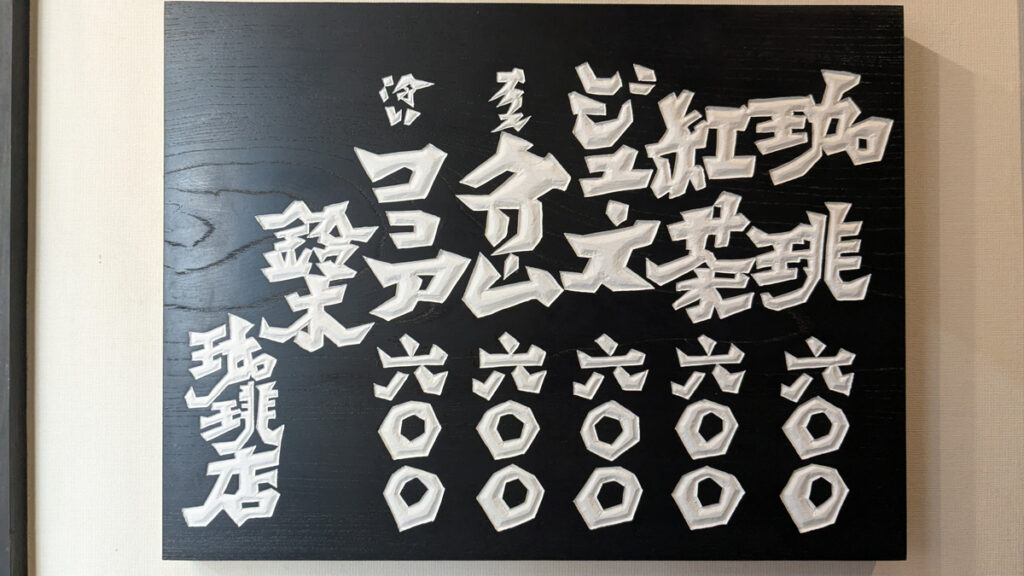 珈琲 六〇〇
紅茶 六〇〇
ジュース 六〇〇
アイスクリーム 六〇〇
冷いココア 六〇〇
鈴木
珈琲店